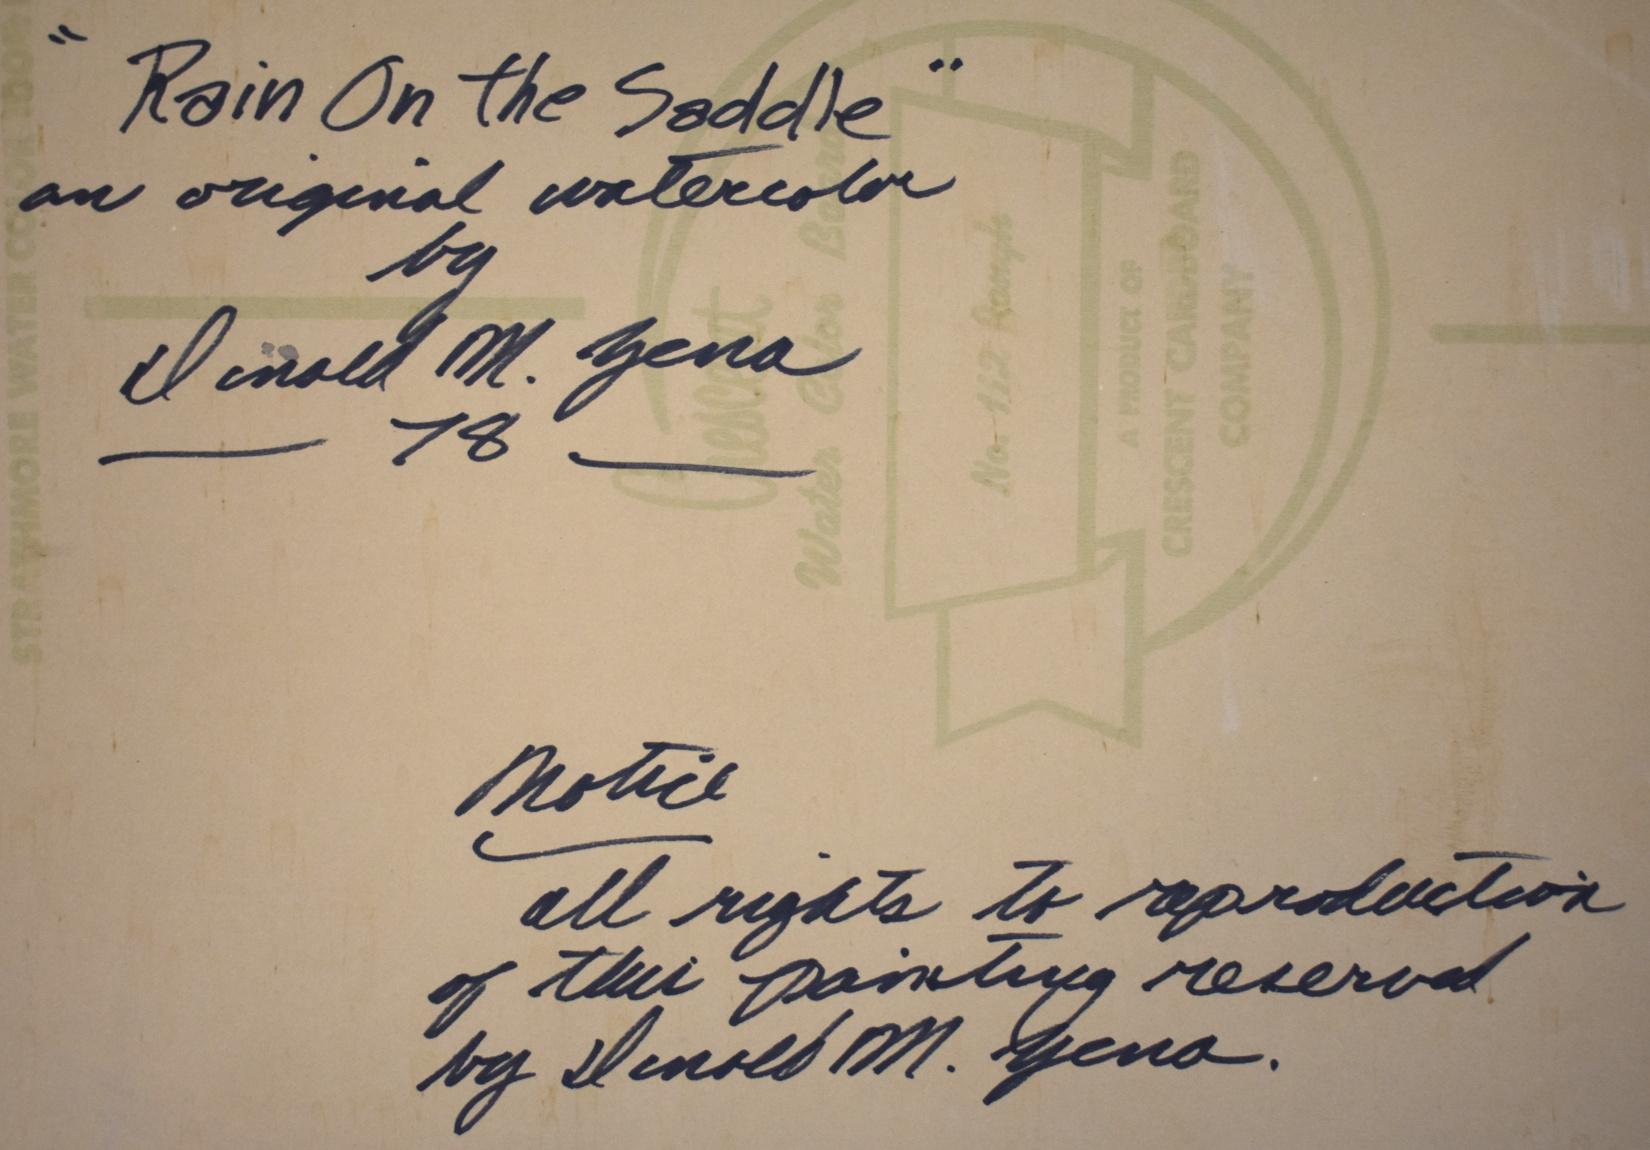 "Rain On the Saddle"
an original watercolor
by
Donald M. Yena
78
Notice
all rights to reproduction
of this painting reserved
by Donald M. Yena.
STRATHMORE WATER COLOR BOARD
Crescent
Water Color Board
No. 112 Rough
A PRODUCT OF
CRESCENT CARDBOARD
COMPANY